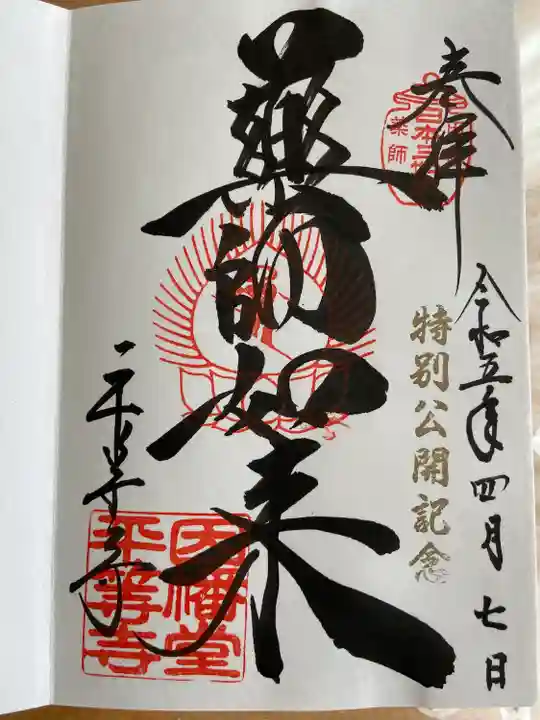 奉拝
日本三
薬師
令和五年四月七日
特別公開記念
薬師如来
平等寺
因幡堂
平等寺